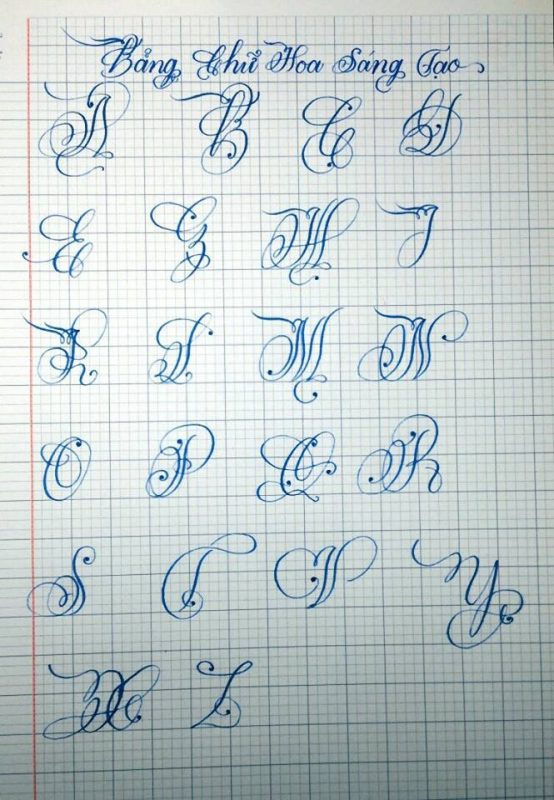 Bảng Chữ Hoa Sáng Tạo
A B C D
E G H I
K L M N
O P Q R
S T V Y
X